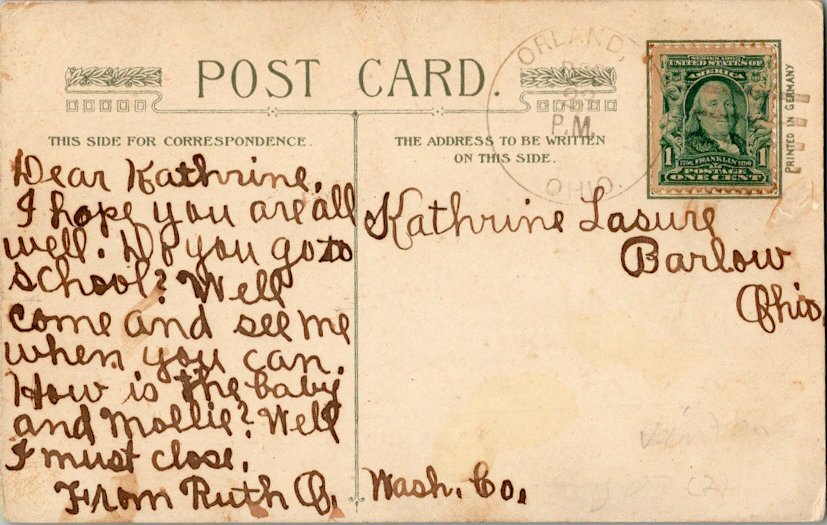 POST CARD.
THIS SIDE FOR CORRESPONDENCE.
THE ADDRESS TO BE WRITTEN
ON THIS SIDE.
ORLAND,
22
P.M.
OHIO.
SERIES 1902
UNITED STATES OF
AMERICA
1 FRANKLIN 1
POSTAGE
ONE CENT
PRINTED IN GERMANY
Dear Kathrine.
I hope you are all
well. Do you go to
school? Well
come and see me
when you can.
How is the baby
and Mollie? Well
I must close.
From Ruth B.
Kathrine Lasure
Barlow
Ohio
Wash. Co.
(2)